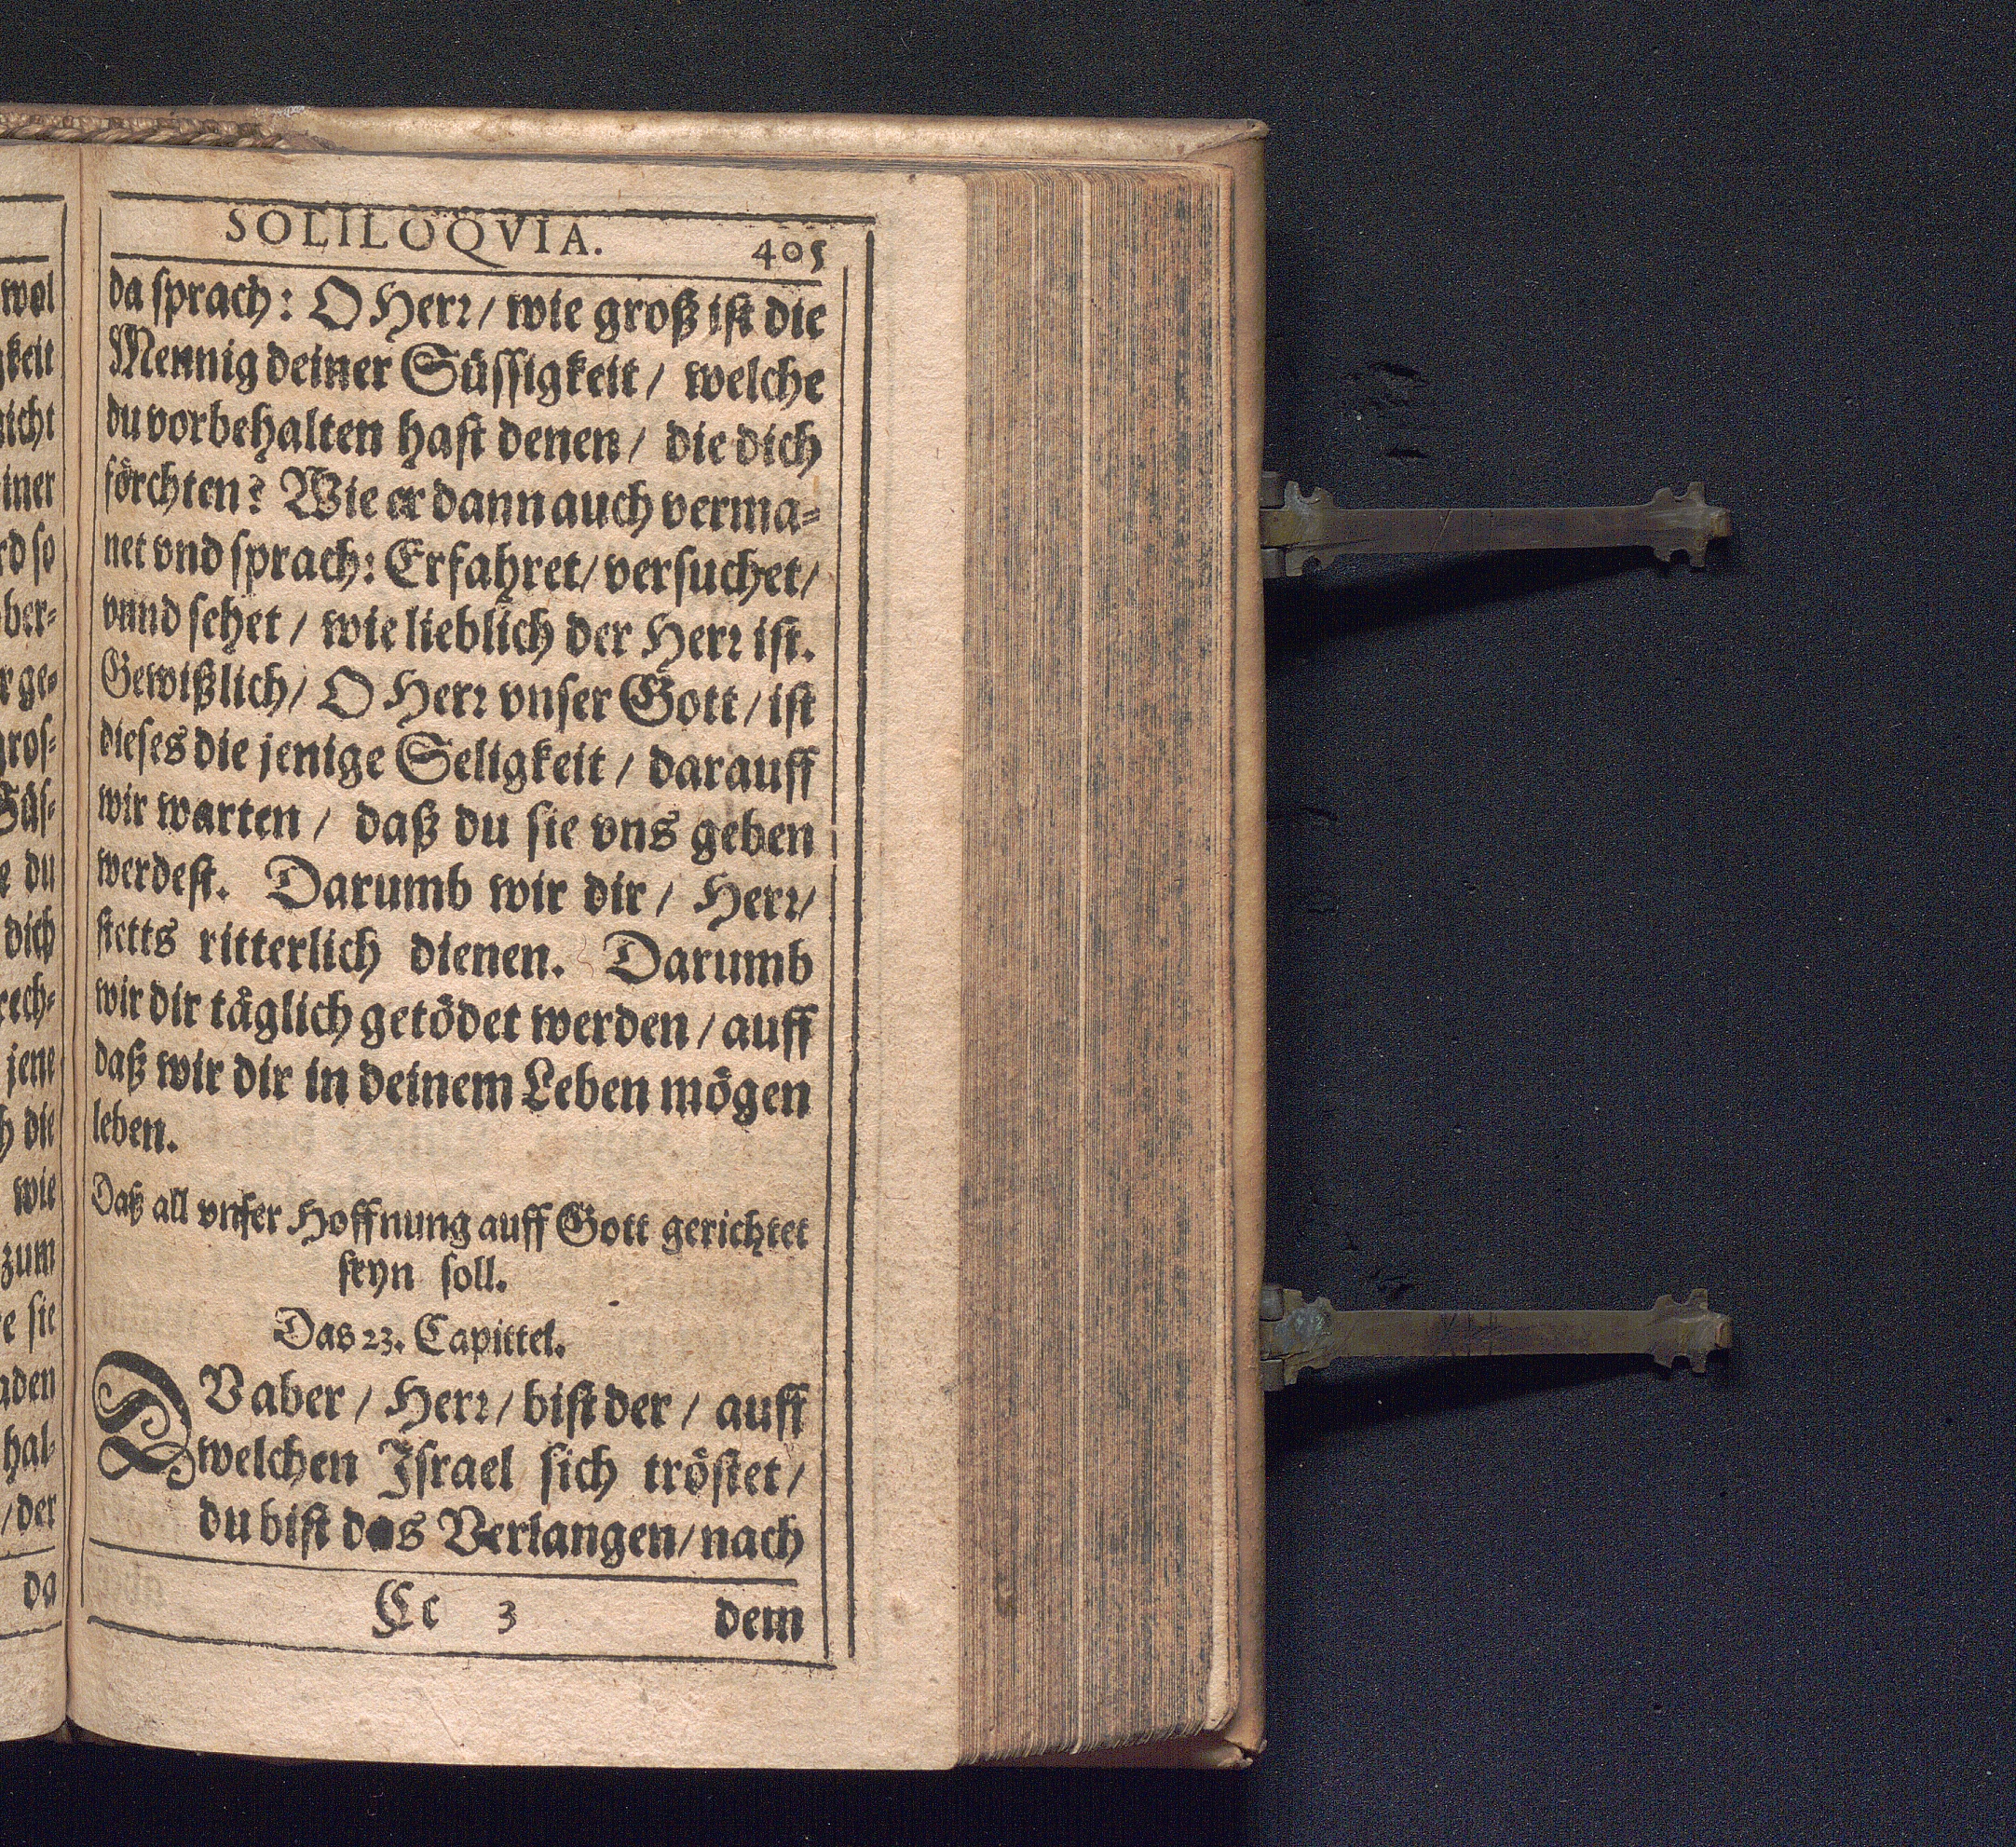 SOLILOQVIA. 405
da sprach: O Herr / wie groß ist die
Mennig deiner Süssigkeit / welche
du vorbehalten hast denen / die dich
förchten? Wie er dann auch verma⸗
net vnd sprach: Erfahret / versuchet /
vnnd sehet / wie lieblich der Herr ist.
Gewißlich / O Herr vnser Gott / ist
dieses die jenige Seligkeit / darauff
wir warten / daß du sie vns geben
werdest. Darumb wir dir / Herr /
stetts ritterlich dienen. Darumb
wir dir täglich getödet werden / auff
daß wir dir in deinem Leben mögen
leben.
Daß all vnser Hoffnung auff Gott gerichtet
seyn soll.
Das 23. Capittel.
DV aber / Herr / bist der / auff
welchen Israel sich tröstet /
du bist das Verlangen / nach
Cc 3 dem